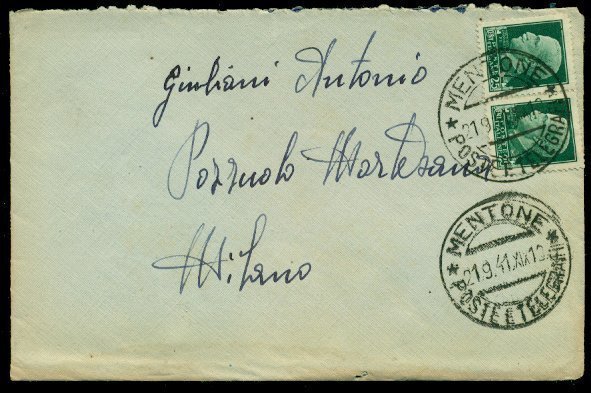 Giuliani Antonio
Pozzuolo Martesana
Milano
* MENTONE *
21.9.
POSTE E TELEGRA
* MENTONE *
21.9.41.XIX 19
POSTE E TELEGRAFI